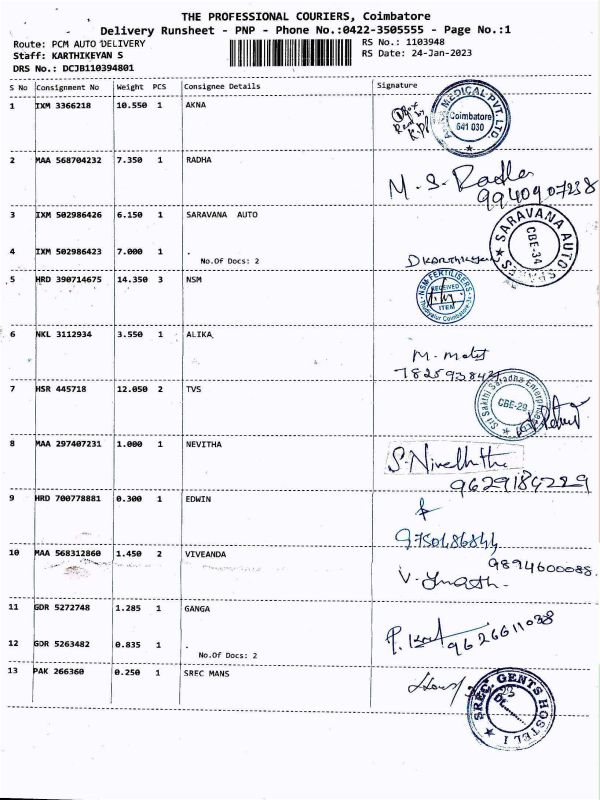 THE PROFESSIONAL COURIERS, Coimbatore
Delivery Runsheet - PNP - Phone No.:0422-3505555 - Page No.:1
Route: PCM AUTO DELIVERY
RS No.: 1103948
Staff: KARTHIKEYAN S
RS Date: 24-Jan-2023
DRS No.: DCJB110394801
S No Consignment No Weight PCS Consignee Details Signature
1 IXM 3366218 10.550 1 AKNA
MEDICAL PVT. LTD.
Coimbatore
641 030
2 MAA 568704232 7.350 1 RADHA
M. S. Radha
9940907238
3 IXM 502986426 6.150 1 SARAVANA AUTO
SARAVANA AUTO SPARES
CBE-34
4 IXM 502986423 7.000 1 .
No.Of Docs: 2
DKARTHIKEYAN
5 HRD 390714675 14.350 3 NSM
NSM FERTILISERS
RECEIVED
ITEM
Thudiyalur Coimbatore
6 NKL 3112934 3.550 1 ALIKA
7 HSR 445718 12.050 2 TVS
Sri Sakthi Saradha Enterprises
CBE-29
8 MAA 297407231 1.000 1 NEVITHA
9629184229
9 HRD 700778881 0.300 1 EDWIN
9750486844
10 MAA 568312860 1.450 2 VIVEANDA
9894600088
11 GDR 5272748 1.285 1 GANGA
9626611038
12 GDR 5263482 0.835 1 .
No.Of Docs: 2
13 PAK 266360 0.250 1 SREC MANS
SREC GENTS HOSTEL I